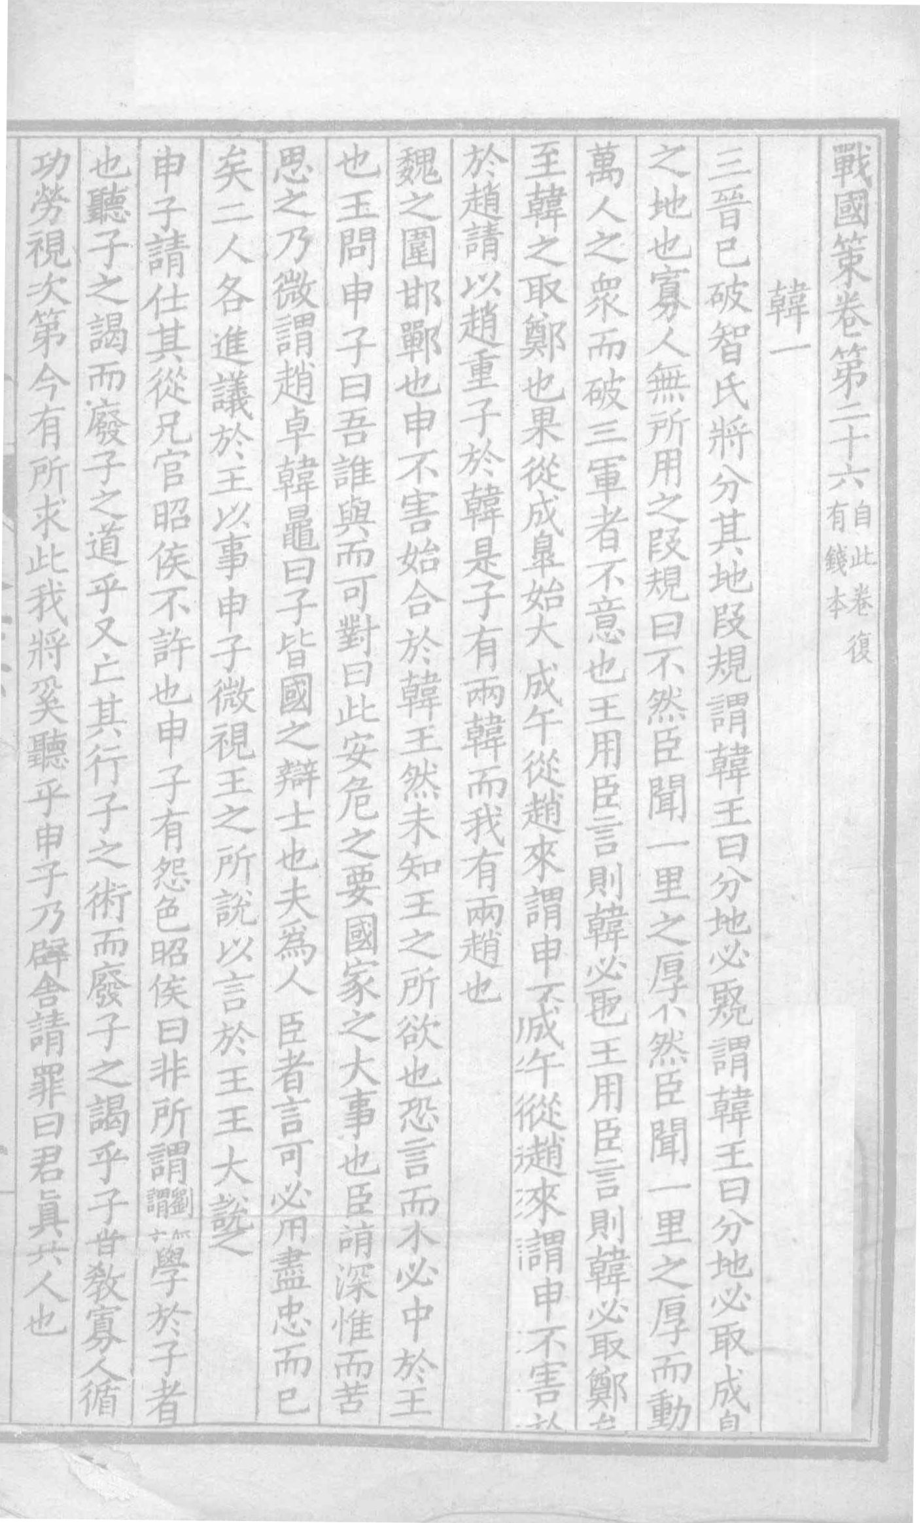 戰國策卷第二十六自此卷復有錢本
韓一
三晉已破智氏將分其地段規謂韓王曰分地必謂韓王曰分地必取成
之地也寡人無所用之段規曰不然臣聞一里之厚不然臣聞一里之厚而動
萬人之衆而破三軍者不意也王用臣言則韓必也王用臣言則韓必取鄭
至韓之取鄭也果從成臯始大成午從趙來謂申不成午從趙來謂申不害於
於趙請以趙重子於韓是子有兩韓而我有兩趙也
魏之圍邯鄲也申不害始合於韓王然未知王之所欲也恐言而未必中於王
也王問申子曰吾誰與而可對曰此安危之要國家之大事也臣請深惟而苦
思之乃微謂趙卓韓鼂曰子皆國之辯士也夫爲人臣者言可必用盡忠而已
矣二人各進議於王以事申子微視王之所說以言於王王大說之
申子請仕其從兄官昭侯不許也申子有怨色昭侯曰非所謂劉無謂字學於子者
也聽子之謁而廢子之道乎又亡其行子之術而廢子之謁乎子甞教寡人循
功勞視次第今有所求此我將奚聽乎申子乃辟舍請罪曰君真其人也